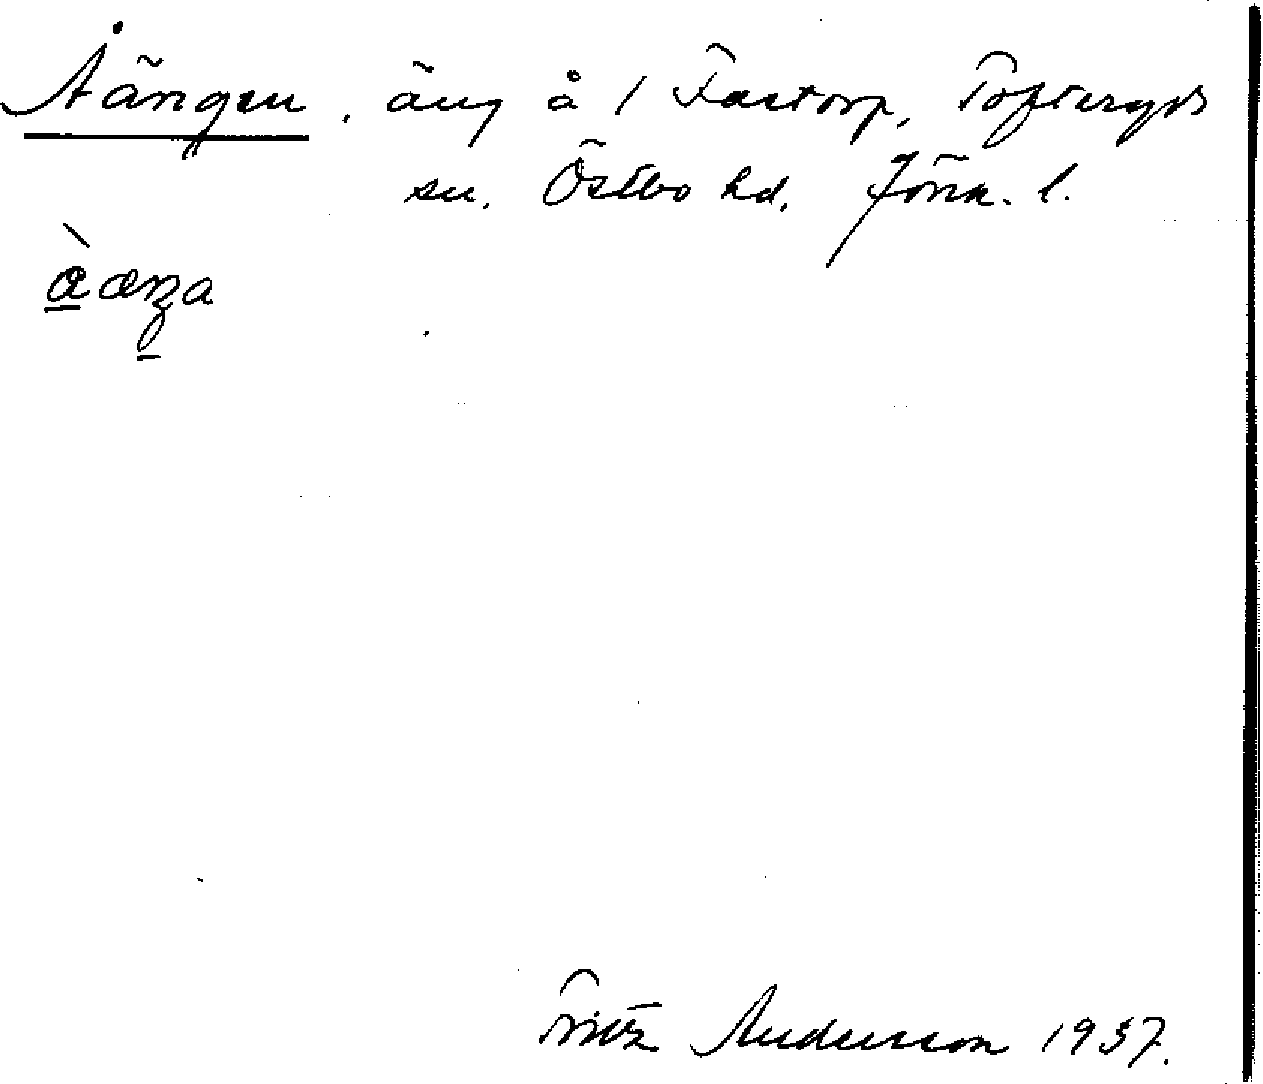 Åängen, äng å 1 Fastorp, Tofteryds
sn. Östbo hd. Jönk. l.
Fritz Andersson 1937.